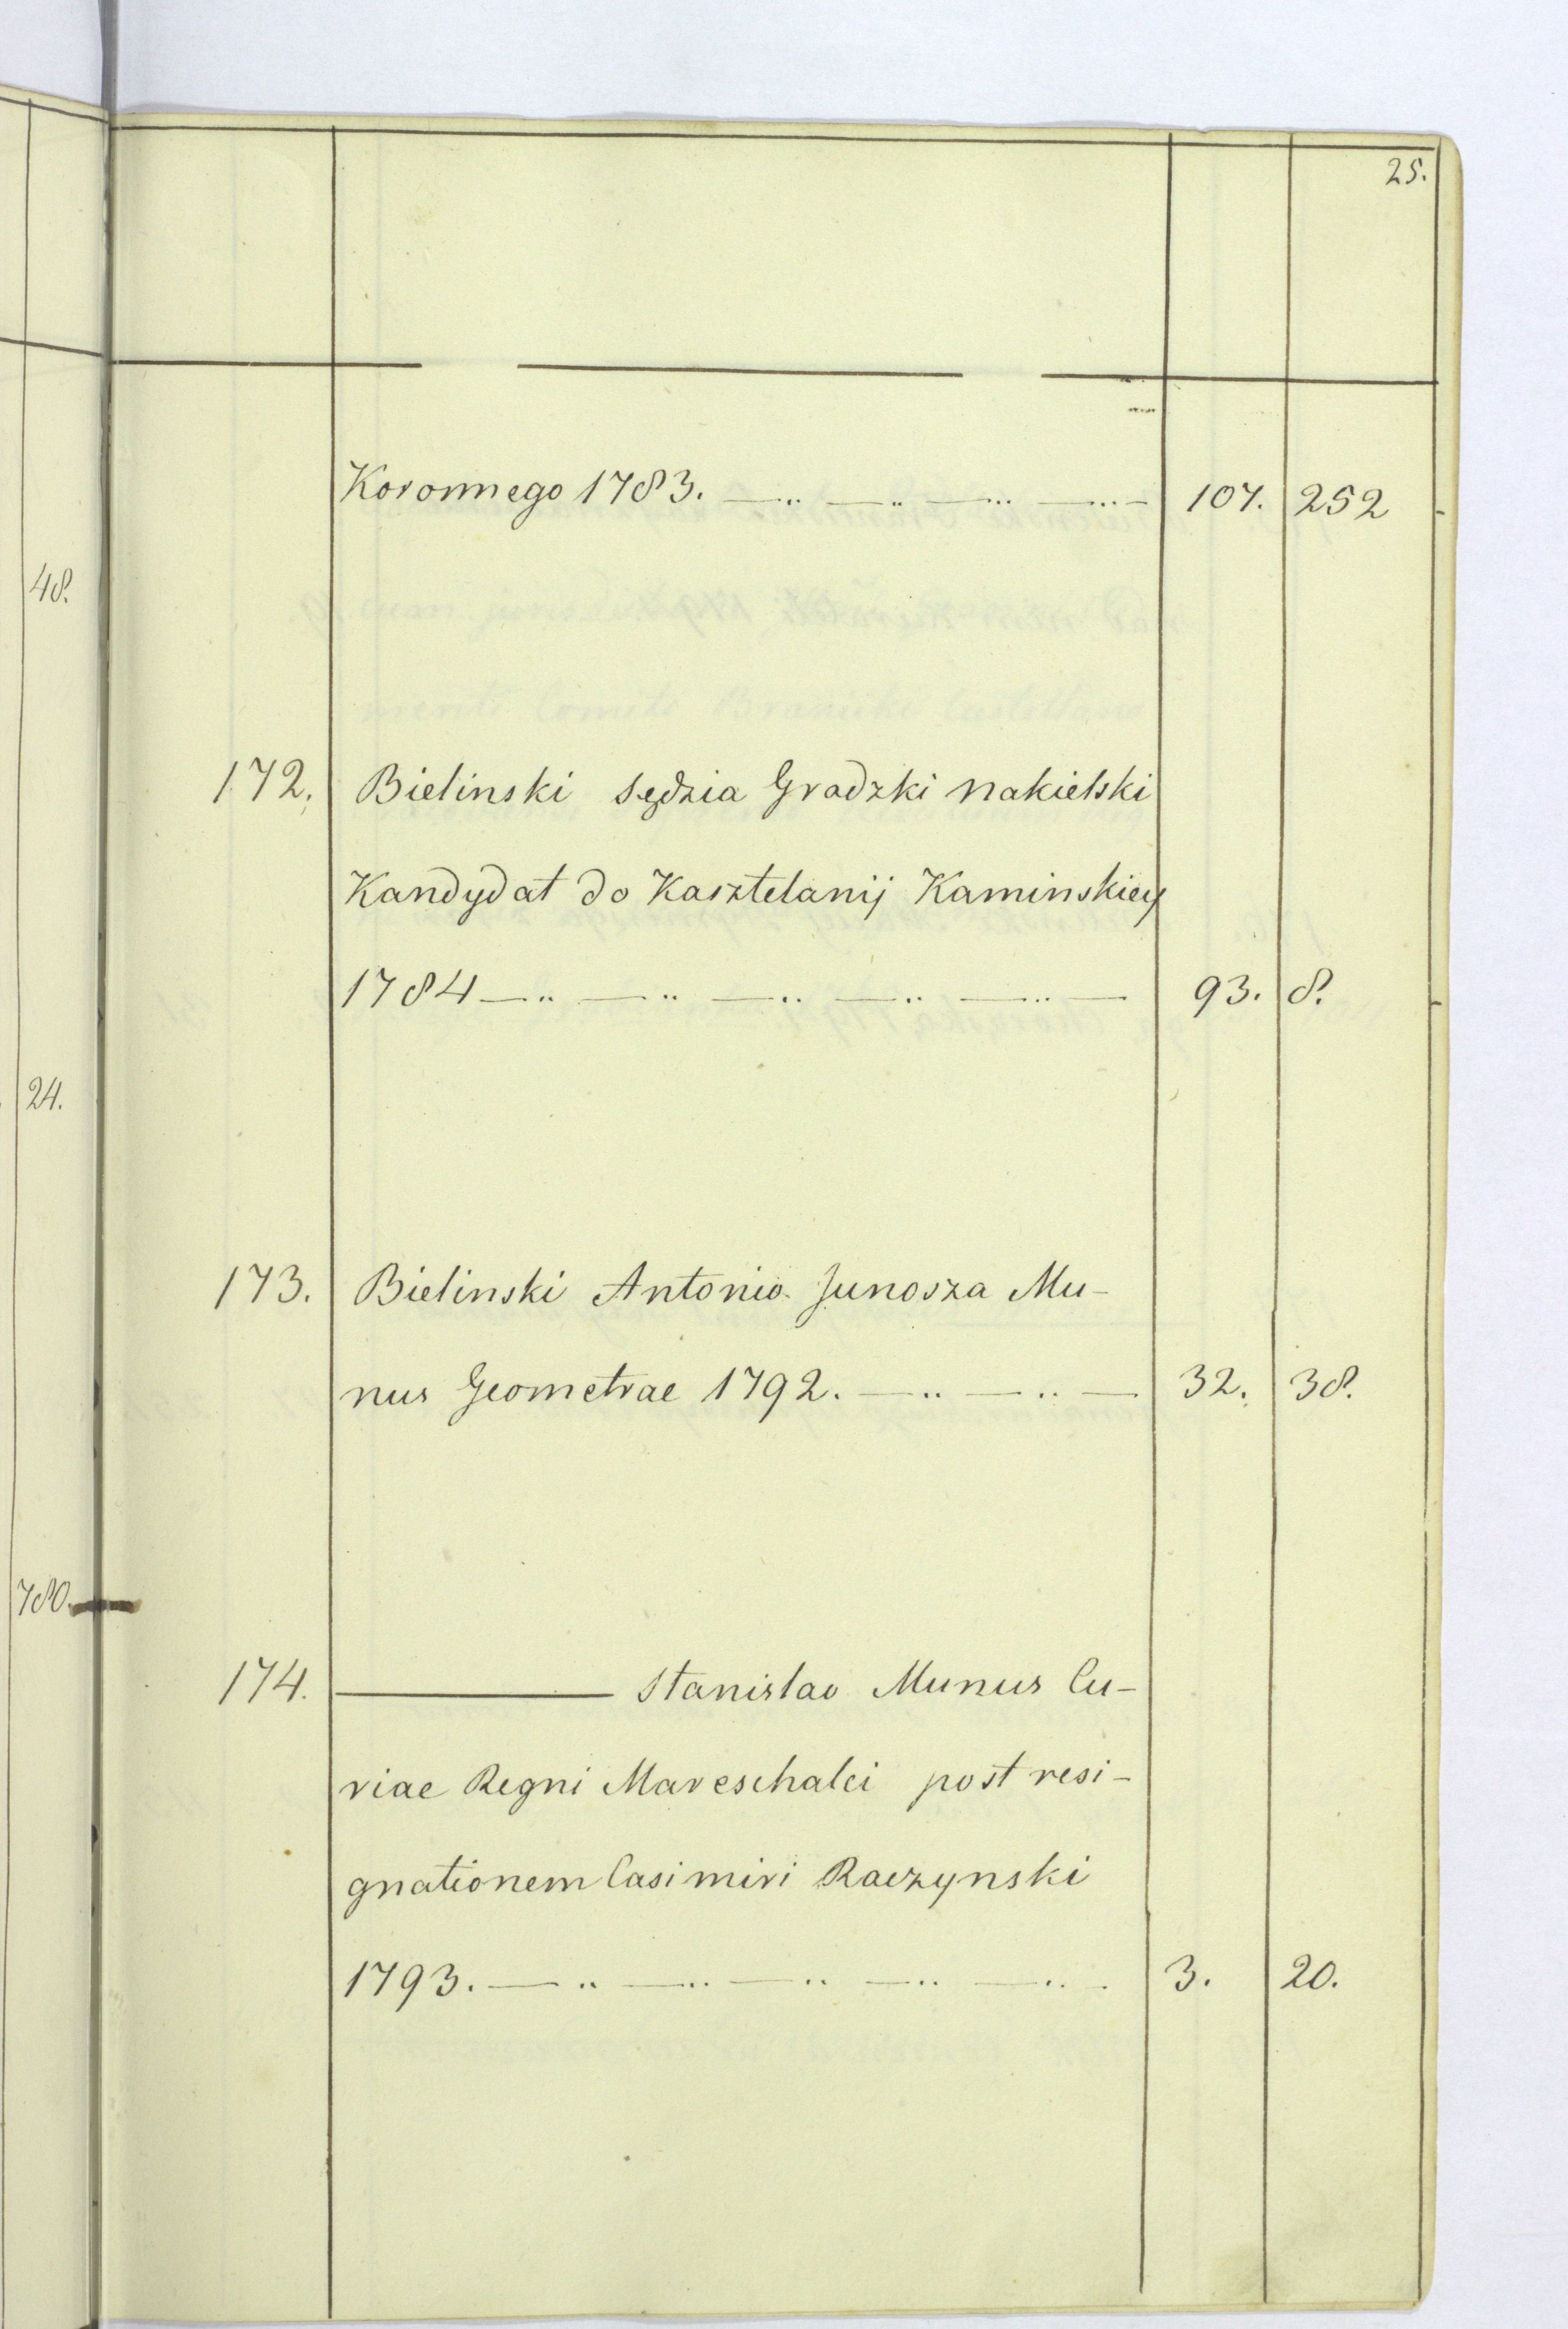 25.
Koronnego 1783. —..—..—...—...— 107. 252
48.
172. Bielinski Sędzia Gradzki nakielski
Kandydat do Kasztelanij Kaminskiey
1784 —..—..—..—..—..— 93. 8.
24.
173. Bielinski Antonio Junosza Mu-
nus Geometrae 1792. —..—..— 32. 38.
780.
174. ——— Stanislao Munus Cu-
riae Regni Mareschalci post resi-
gnationem Casimiri Raczynski
1793. —..—..—..—..—.. 3. 20.